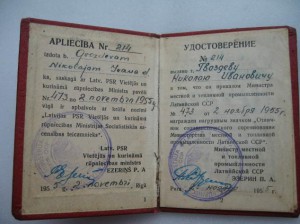 APLIECĪBA Nr. 214
izdota b.
Nikolajam
ka, saskaņā ar Latv. PSR Vietējās un
kurināmā rūpniecības Ministra pavēli
Nr. 473 2. novembrī 1955. g.
viņš ir
"Latvijas PSR Vietējās un kurināmā
rūpniecības Ministrijas Sociālistiskās
Latv. PSR
Vietējās un kurināmā
rūpniecības Ministrs
EZERIŅŠ P. A.
Rīgā
УДОСТОВЕРЕНИЕ
№ 214
Гвоздеву
Николаю Ивановичу
в том, что он приказом Министра
местной и топливной промышленности
Латвийской ССР
№ 473 от 2 ноября 1955 г.
награжден нагрудным значком "Отличник
социалистического соревнования
Министерства местной и топливной
промышленности Латвийской ССР".
Министр местной
и топливной
промышленности
Латвийской ССР
ЭЗЕРИН П. А.
Рига
1955 г.